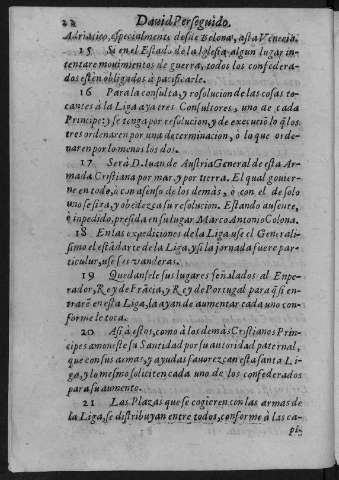 22 David Perseguido.
Adriatico, especialmente desde Belona, asta Venecia.
15 Si en el Estado de la Iglesia algun lugar in-
tentare movimientos de guerra, todos los confedera-
dos estèn obligados à pacificarle.
16 Para la consulta, y resolucion de las cosas to-
cantes à la Liga aya tres Consultores, uno de cada
Principe: y se tenga por resolucion, y de execuciõ lo q̃ los
tres ordenaren por una determinacion, ò lo que orde-
naren por lo menos los dos.
17 Serà D. Juan de Austria General de esta Ar-
mada Cristiana por mar, y por tierra. El qual govier-
ne en todo, ò con asenso de los demàs, ò con el de solo
uno se sirva, y obedezca su resolucion. Estando ausente,
ò inpedido, presida en su lugar Marco Antonio Colona.
18 En las expediciones de la Liga use el Generali-
simo el estãdarte de la Liga, y si la jornada fuere par-
ticular, use sus vanderas.
19 Quedansele sus lugares señalados al Enpe-
rador, Rey de Frãcia, y Rey de Portugal para q̃ si en-
traren en esta Liga, la ayan de aumentar cada uno con-
forme le toca.
20 Asi à estos, como à los demàs Cristianos Prin-
cipes amoneste su Santidad por su autoridad paternal,
que con sus armas, y ayudas favorezcan esta santa Li-
ga, y lo mesmo soliciten cada uno de los confederados
para su aumento.
21 Las Plazas que se cogieren con las armas de
la Liga, se distribuyan entre todos, conforme à las ca-
pi-